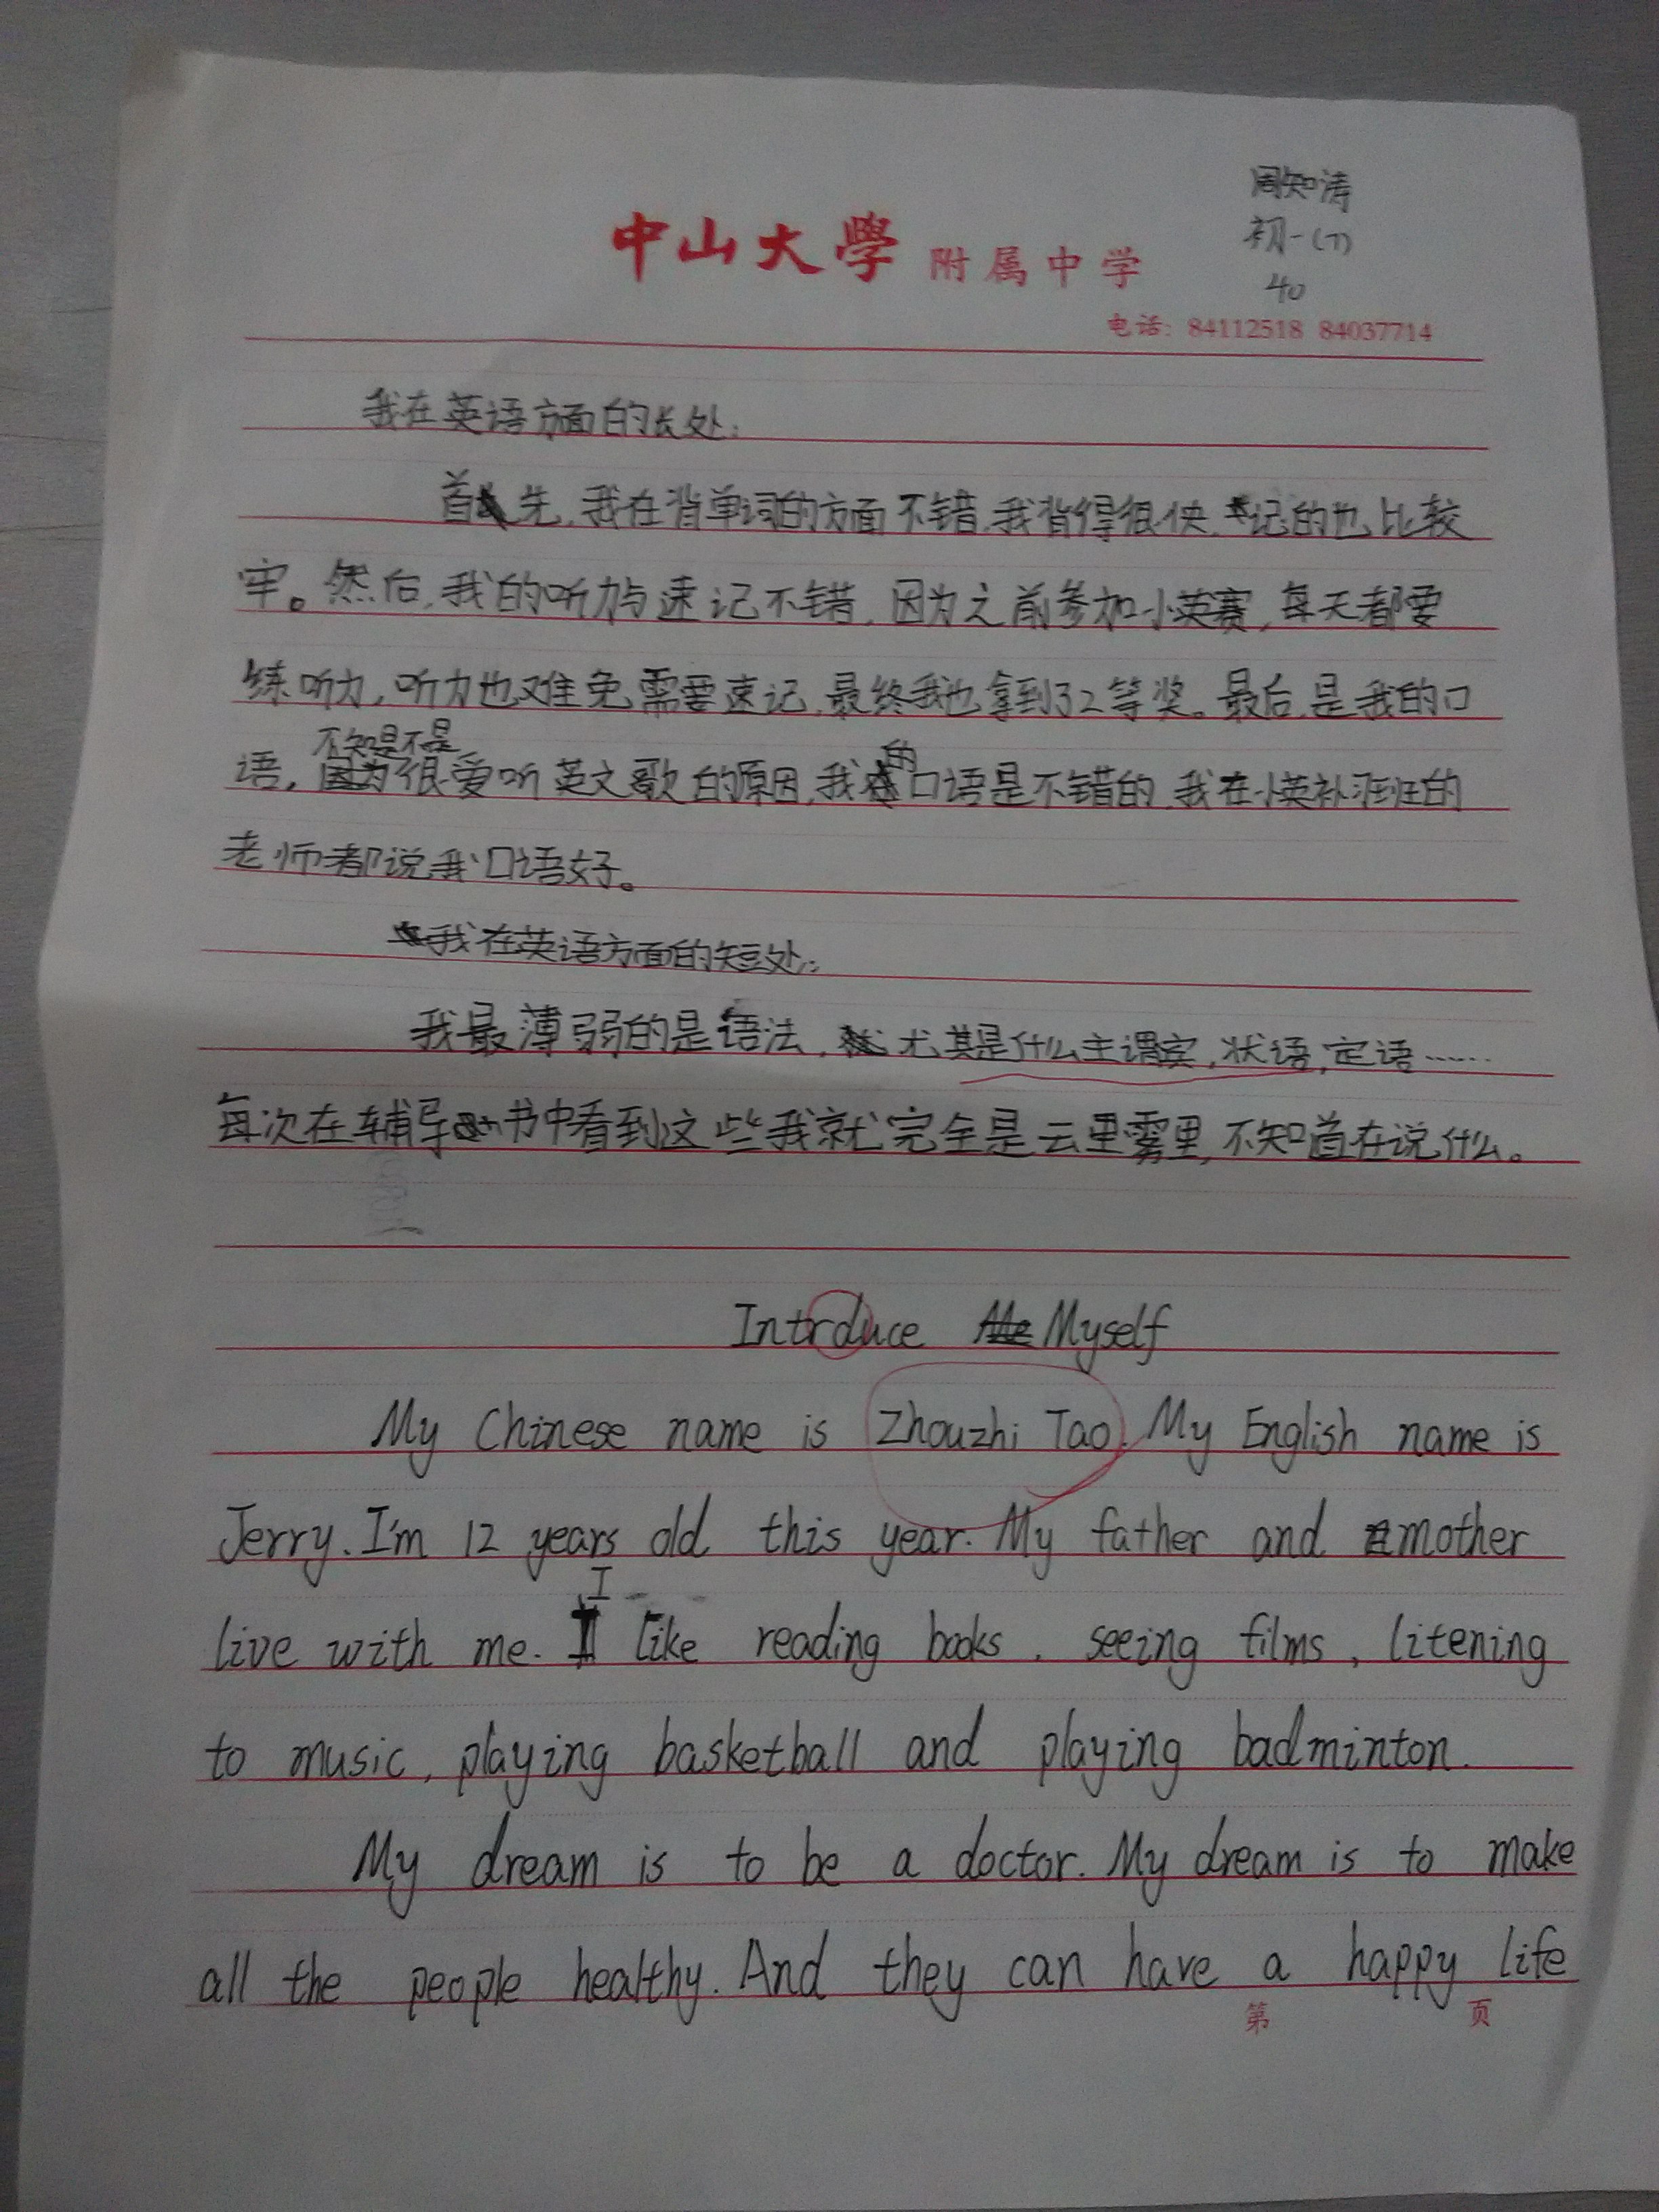 周知涛
初一(7)
40
中山大學 附属中学
电话: 84112518 84037714
我在英语方面的长处:
首先,我在背单词的方面不错,我背得很快,记的也比较
牢。然后,我的听力与速记不错,因为之前参加小英赛,每天都要
练听力,听力也难免需要速记,最终我也拿到了2等奖。最后,是我的口
语,不知是不是很爱听英文歌的原因,我的口语是不错的,我在小英补习班的
老师都说我口语好。
我在英语方面的短处:
我最薄弱的是语法,尤其是什么主谓宾,状语,定语……
每次在辅导书中看到这些我就完全是云里雾里,不知道在说什么。
Intrduce Myself
My Chinese name is Zhouzhi Tao. My English name is
Jerry. I'm 12 years old this year. My father and mother
live with me. I like reading books, seeing films, litening
to music, playing basketball and playing badminton.
My dream is to be a doctor. My dream is to make
all the people healthy. And they can have a happy life
第 页